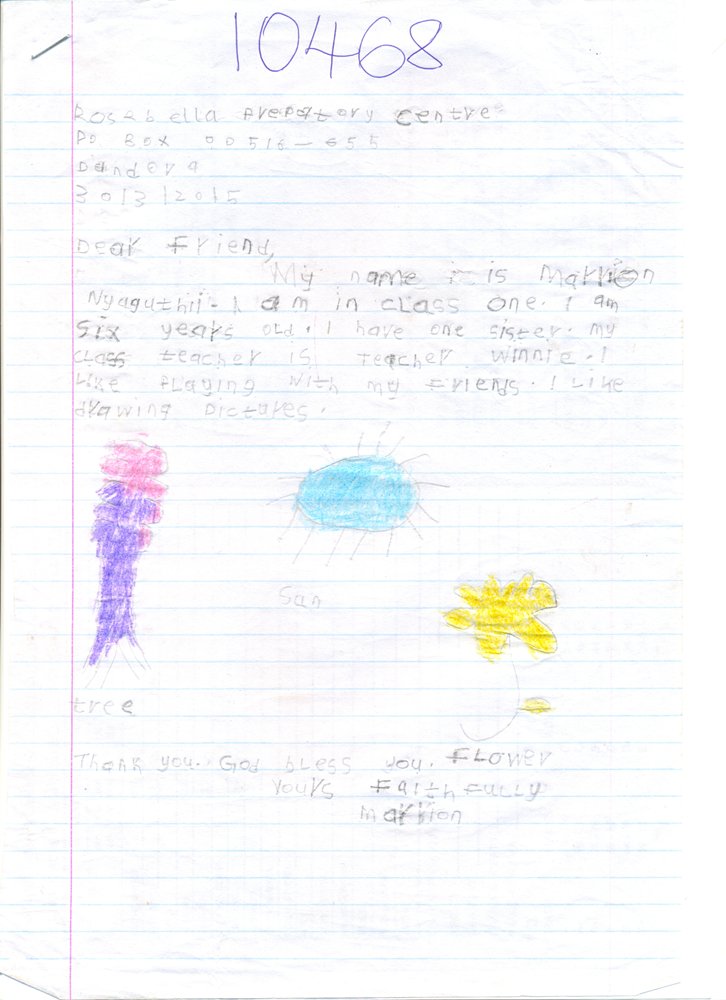 10468
Rosabella Prepatory Centre
Po Box 00516-655
Dandora
30/3/2015
Dear Friend,
My name i is Marrion
Nyaguthii. I am in class one. I am
six years old. I have one sister. my
class teacher is teacher winnie. I
Like Playing with my Friends. I Like
drawing Pictures.
Sun
tree
Thank you. God bless you. FLower
Yours Faithfully
Marrion